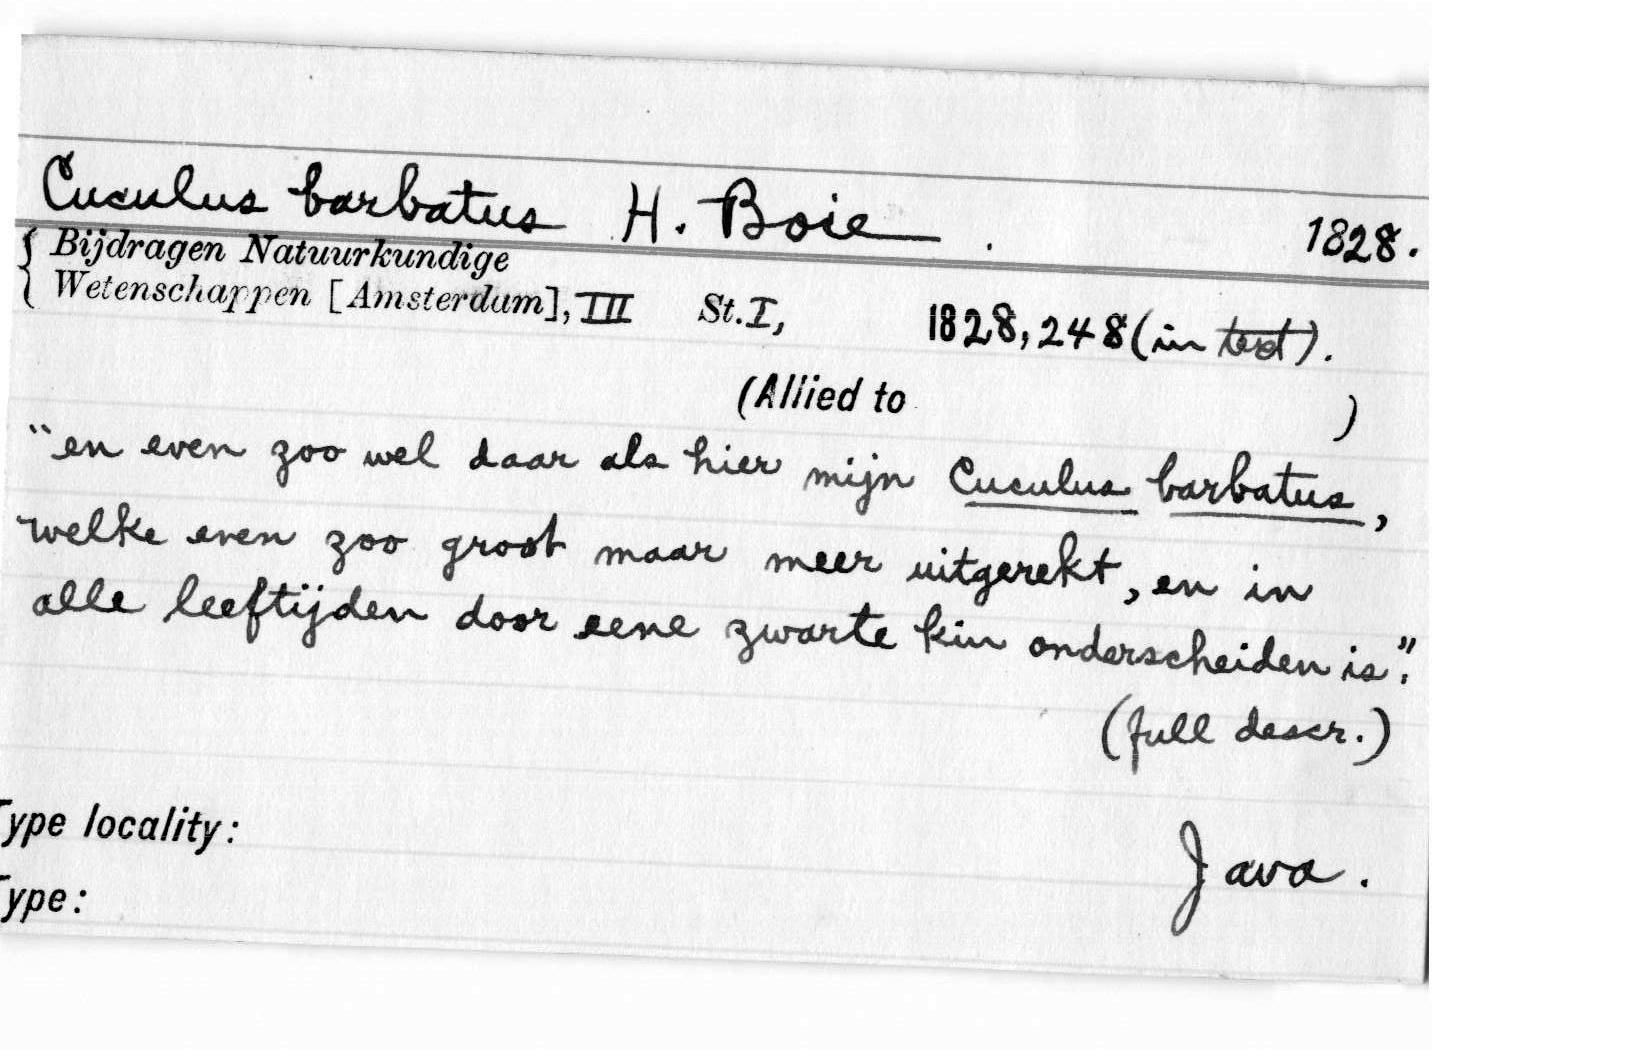 Cuculus barbatus H. Boie. 1828.
Bijdragen Natuurkundige
Wetenschappen [Amsterdam], III St. I, 1828, 248 (in text).
(Allied to )
"en even zoo wel daar als hier mijn Cuculus barbatus,
welke even zoo groot maar meer uitgerekt, en in
alle leeftijden door eene zwarte kin onderscheiden is".
(full descr.)
Type locality: Java.
Type: